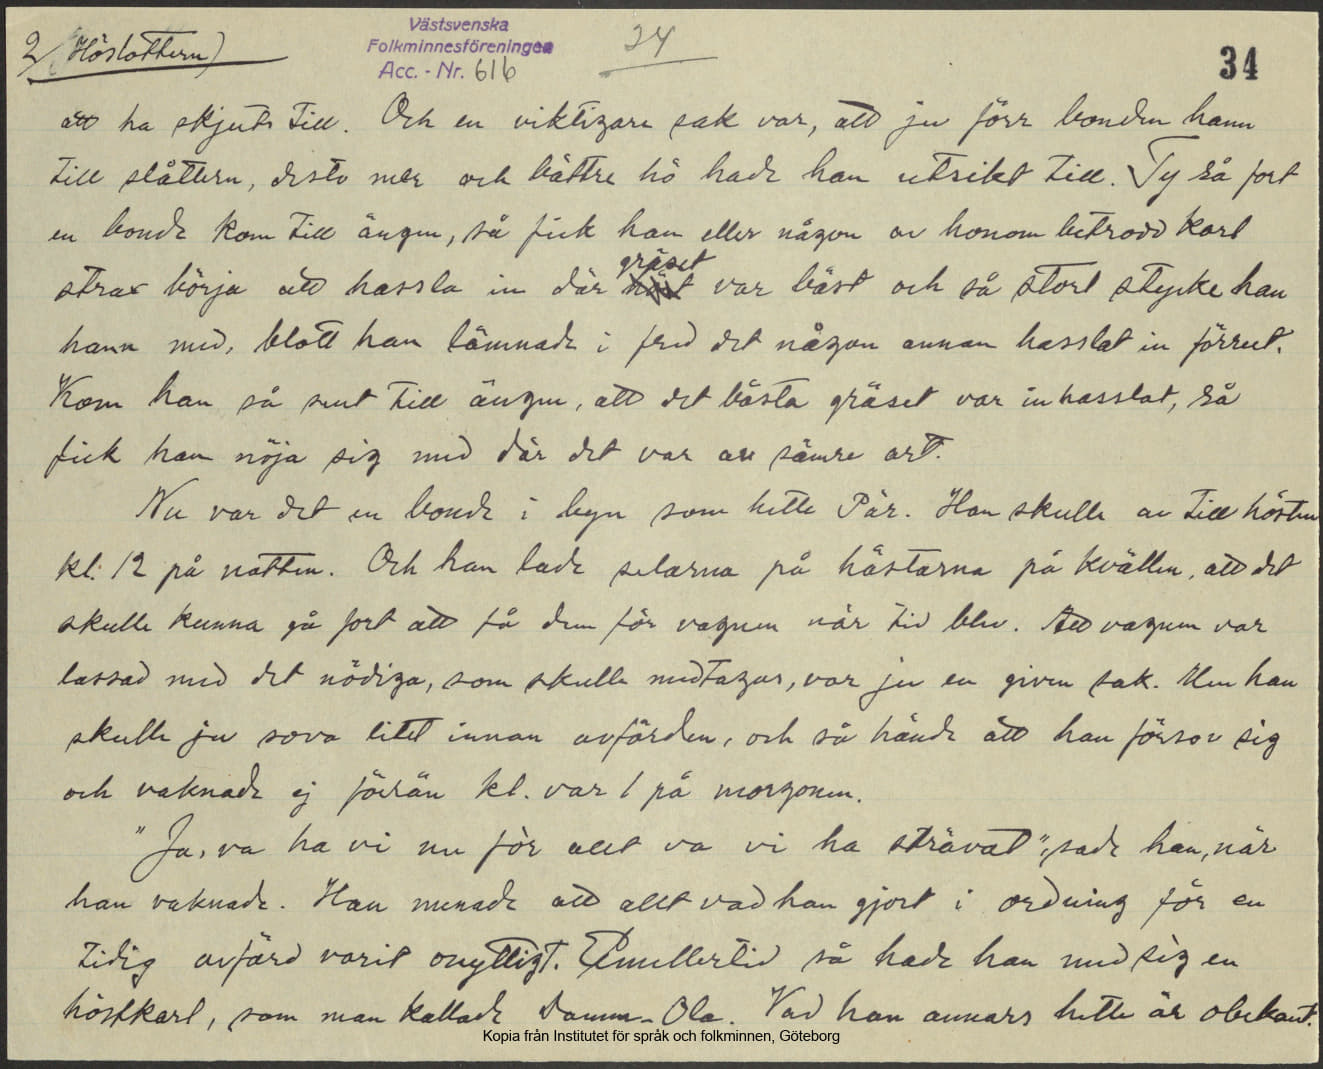 2/ Höslåttern)
Västsvenska
Folkminnesföreningen
Acc.-Nr. 616
34
34
att ha skjuts till. Och en viktigare sak var, att ju förr bonden hann
till slåttern, desto mer och bättre hö hade han utsikt till. Ty så fort
en bonde kom till ängen, så fick han eller någon av honom betrodd karl
gräset
strax börja att hassla in där var bäst och så stort stycke han
hann med, blott han lämnade i fred det någon annan hasslat in förrut.
Kom han så sent till ängen, att det bästa gräset var inhasslat, så
fick han nöja sig med där det var av sämre art.
Nu var det en bonde i byn som hette Pär. Han skulle av till hösten
kl. 12 på natten. Och han lade selarna på hästarna på kvällen, att det
skulle kunna gå fort att få dem för vagnen när tid blev. Att vagnen var
lassad med det nödiga, som skulle medtagas, var ju en given sak. Men han
skulle ju sova litet innan avfärden, och så hände att han försov sig
och vaknade ej förrän kl. var 1 på morgonen.
"Ja, va ha vi nu för allt va vi ha strävat", sade han, när
han vaknade. Han menade att allt vad han gjort i ordning för en
tidig avfärd varit onyttigt. Emellertid så hade han med sig en
höstkarl, som man kallade Damm-Ola. Vad han annars hette är obekant.
Kopia från Institutet för språk och folkminnen, Göteborg